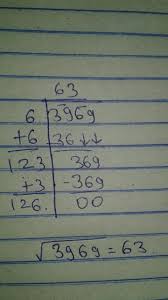 63
6 3969
+6 36↓↓
123 369
+3 -369
126. 00
√3969 = 63